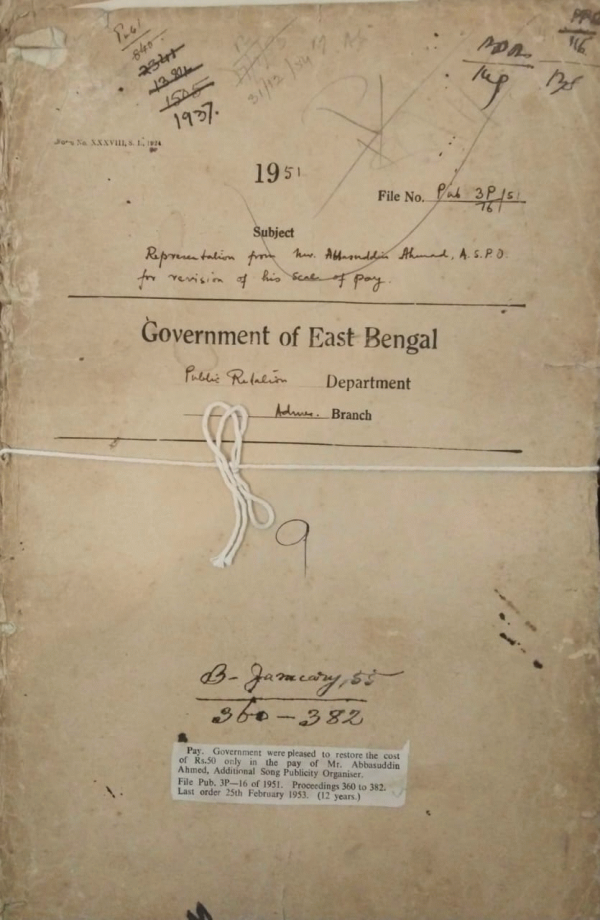 Publ
840
2341
1394
1505
1937.
31/12/54
Form No. XXXVIII, S. I., 1924
1951
File No. Pub 3P/51
16
Subject
Representation from Mr. Abbasuddin Ahmad, A.S.P.O.
for revision of his scale of pay.
Government of East Bengal
Public Relation Department
Admn. Branch
9
B- January, 55
360-382
Pay. Government were pleased to restore the cost
of Rs.50 only in the pay of Mr. Abbasuddin
Ahmed, Additional Song Publicity Organiser.
File Pub. 3P—16 of 1951. Proceedings 360 to 382.
Last order 25th February 1953. (12 years.)